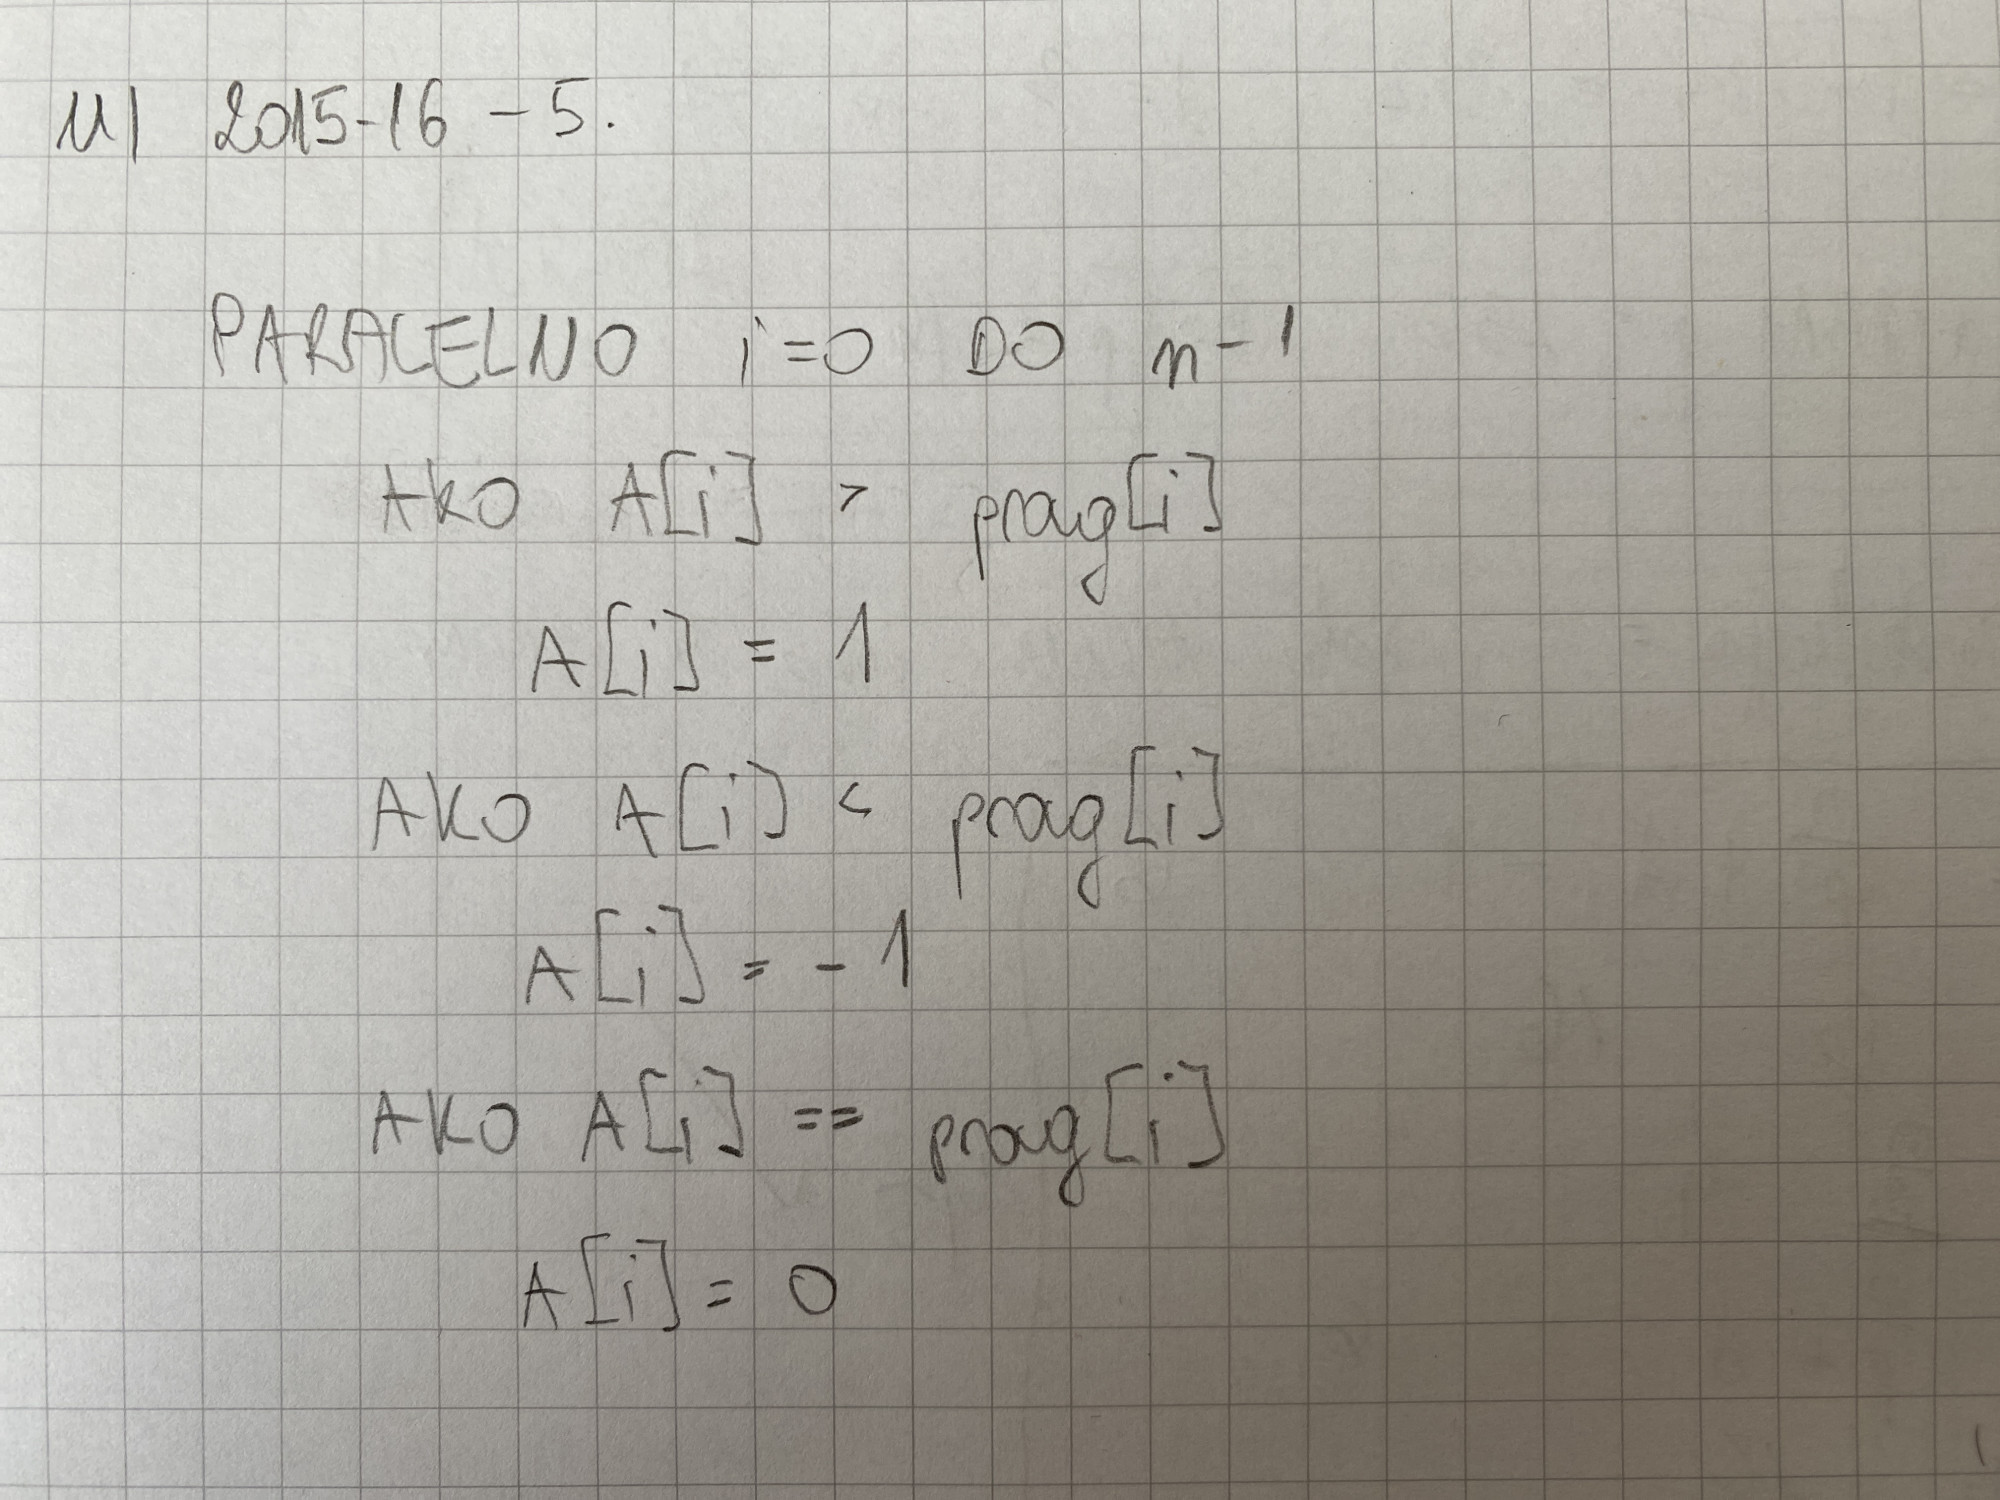 MI 2015-16 - 5.
PARALELNO i=0 DO n-1
AKO A[i] > prag[i]
A[i] = 1
AKO A[i] < prag[i]
A[i] = -1
AKO A[i] == prag[i]
A[i] = 0